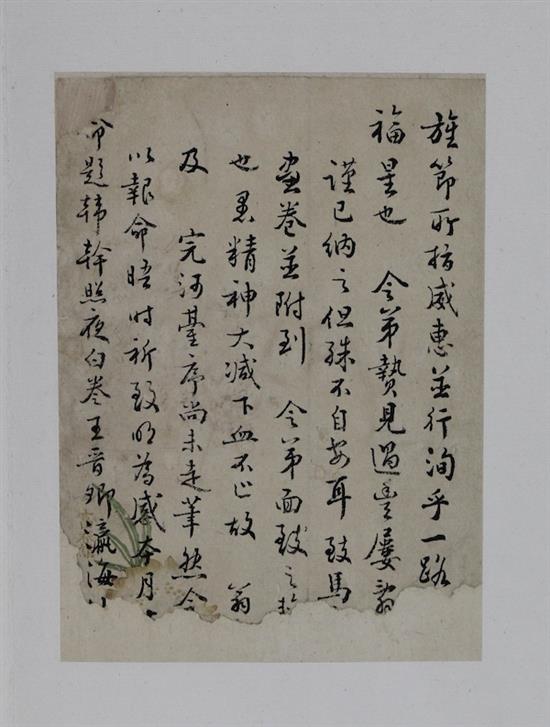 旌節所指威惠並行洵乎一路
福星也 令弟贄見過豐屢辭
謹已納之但殊不自安耳致馬
畫卷並附到 令弟面致之
也愚精神大減下血不止故 翁
及 完河臺序尚未走筆然今
以報命晤時祈致明為感本月
命題韓幹照夜白卷王晉卿瀛海